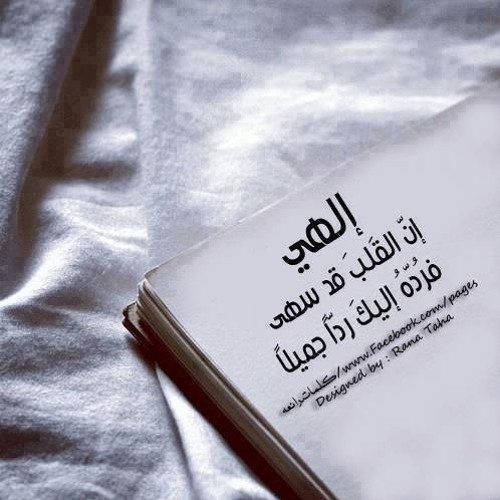 إلهي
إنّ القَلبَ قد سهى
فرُدّهُ إليكَ ردّاً جميلاً
www.Facebook.com/pages/كلمات رائعه
Designed by : Rana Taha